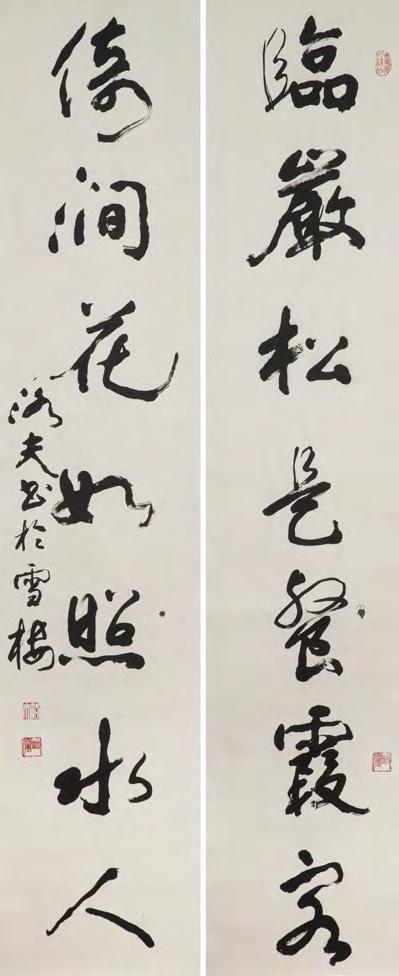 臨巖松是餐霞客
倚澗花如照水人
洛夫書於雪樓